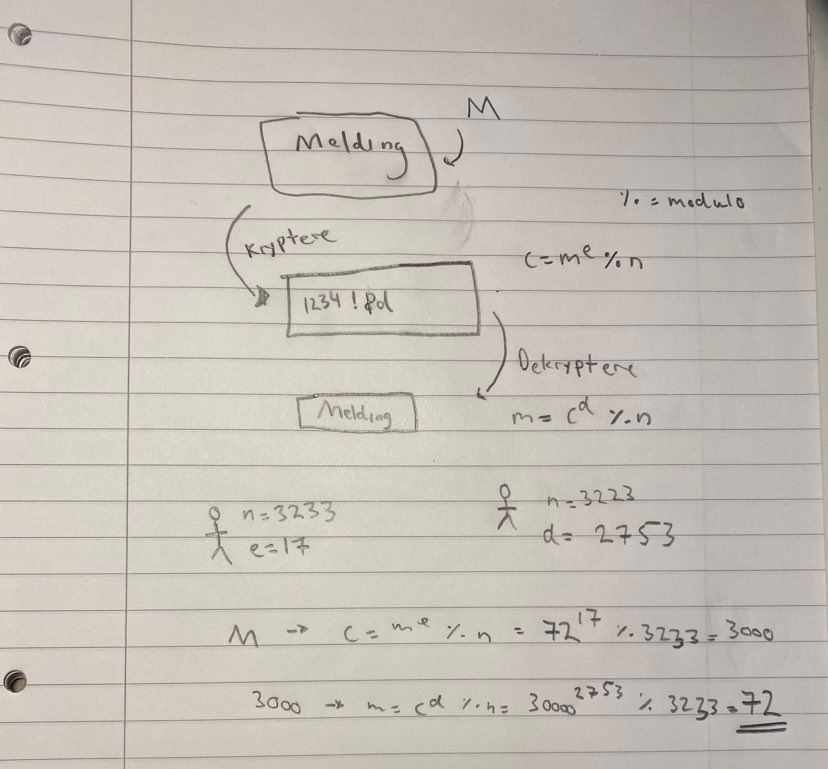 M
Melding
% = modulo
Kryptere
c = m^e % n
1234 ! &d
Dekryptere
Melding
m = c^d % n
n = 3233
e = 17
n = 3223
d = 2753
M → c = m^e % n = 72^17 % 3233 = 3000
3000 → m = c^d % n = 30000^2753 % 3233 = 72